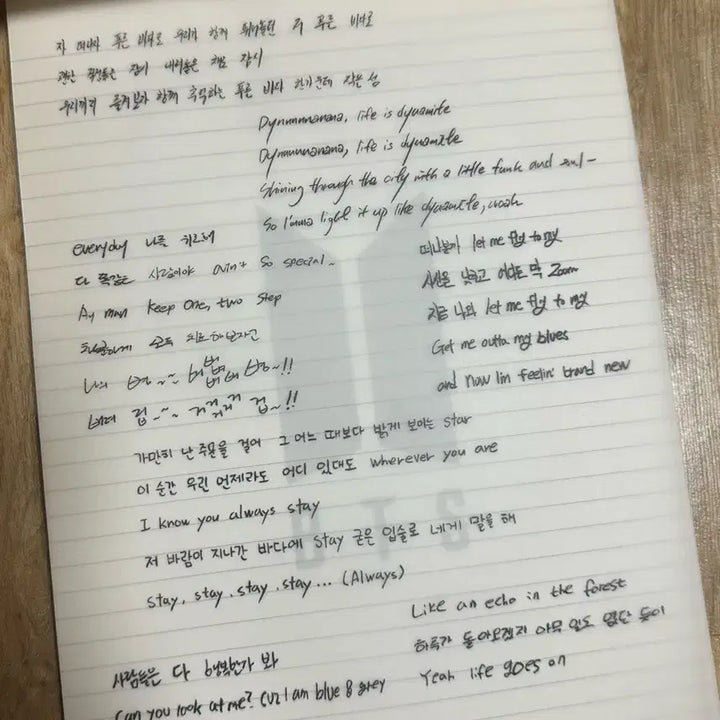 자 떠나자 푸른 바다로 우리가 함께 뛰어놀던 저 푸른 바다로
괜한 걱정들은 잠시 내려놓은 채로 잠시
우리끼리 즐겨보자 함께 추억하는 푸른 바다 한가운데 작은 섬
Dynnnnnanana, life is dynamite
Dynnnnnanana, life is dynamite
Shining through the city with a little funk and soul-
So I'mma light it up like dynamite, woah
everyday 나를
다 똑같은 사람이야 ain't so special~
Ay man keep one, two step
차분하게 모두 치료해보자고
나의 방~~ !!
~~ !!
떠나볼까 let me fly to my
시선은 낮추고 어디든 막 Zoom
지금 나의 let me fly to my
Get me outta my blues
and now I'm feelin' brand new
가만히 난 주문을 걸어 그 어느 때보다 밝게 보이는 star
이 순간 우린 언제라도 어디 있대도 wherever you are
I know you always stay
저 바람이 지나간 바다에 stay 굳은 입술로 네게 말을 해
stay, stay, stay, stay... (Always)
Like an echo in the forest
하루가 돌아오겠지 아무 일도 없단 듯이
Yeah life goes on
사람들은 다 행복한가 봐
Can you look at me? Cuz I am blue & grey
BTS